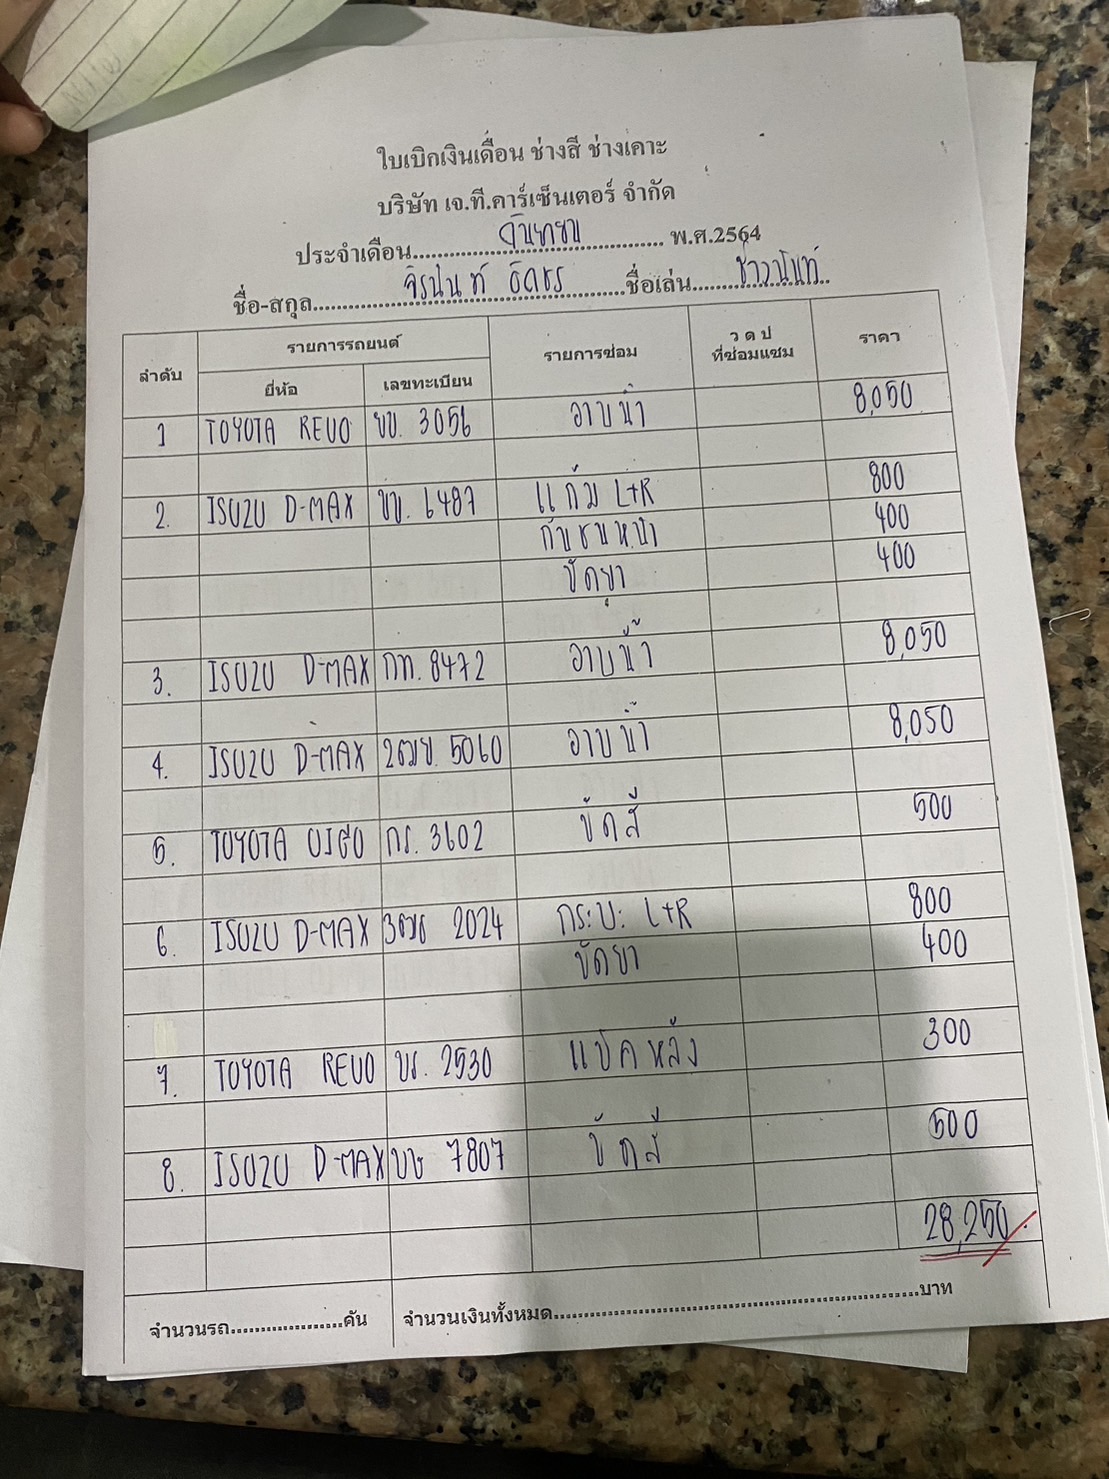 ใบเบิกเงินเดือน ช่างสี ช่างเคาะ
บริษัท เจ.ที.คาร์เซ็นเตอร์ จำกัด
ประจำเดือน กันยายน พ.ศ.2564
ชื่อ-สกุล จิรนันท์ ชื่อเล่น
ลำดับ รายการรถยนต์ รายการซ่อม ว ด ป ที่ซ่อมแซม ราคา
ยี่ห้อ เลขทะเบียน
1 TOYOTA REVO ยบ. 3056 อาบน้ำ 8,050
2. ISUZU D-MAX ขบ. 6487 แก้ม L+R 800
กันชนหน้า 400
ขัดยา 400
3. ISUZU D-MAX กท. 8472 อาบน้ำ 8,050
4. ISUZU D-MAX 2ฒย. 5060 อาบน้ำ 8,050
5. TOYOTA VIGO กร. 3602 ขัดสี 500
6. ISUZU D-MAX 2024 กระบะ L+R 800
ขัดยา 400
7. TOYOTA REVO บร. 2530 แป๊คหลัง 300
8. ISUZU D-MAX 7807 ขัดสี 500
28,250
จำนวนรถ คัน จำนวนเงินทั้งหมด บาท